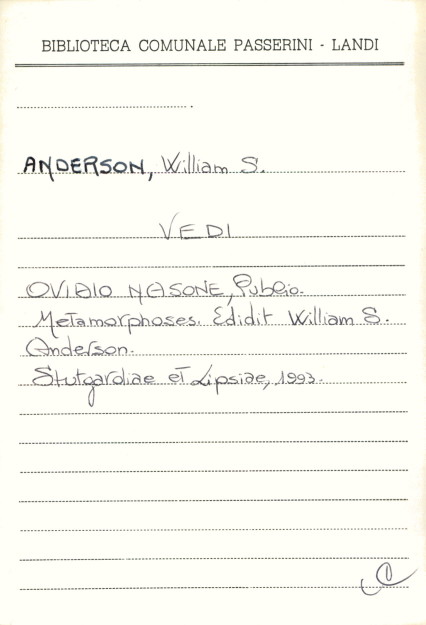 BIBLIOTECA COMUNALE PASSERINI - LANDI
ANDERSON, William S.
VEDI
OVIDIO NASONE, Publio.
Metamorphoses. Edidit William S.
Anderson.
Stutgardiae et Lipsiae, 1993.